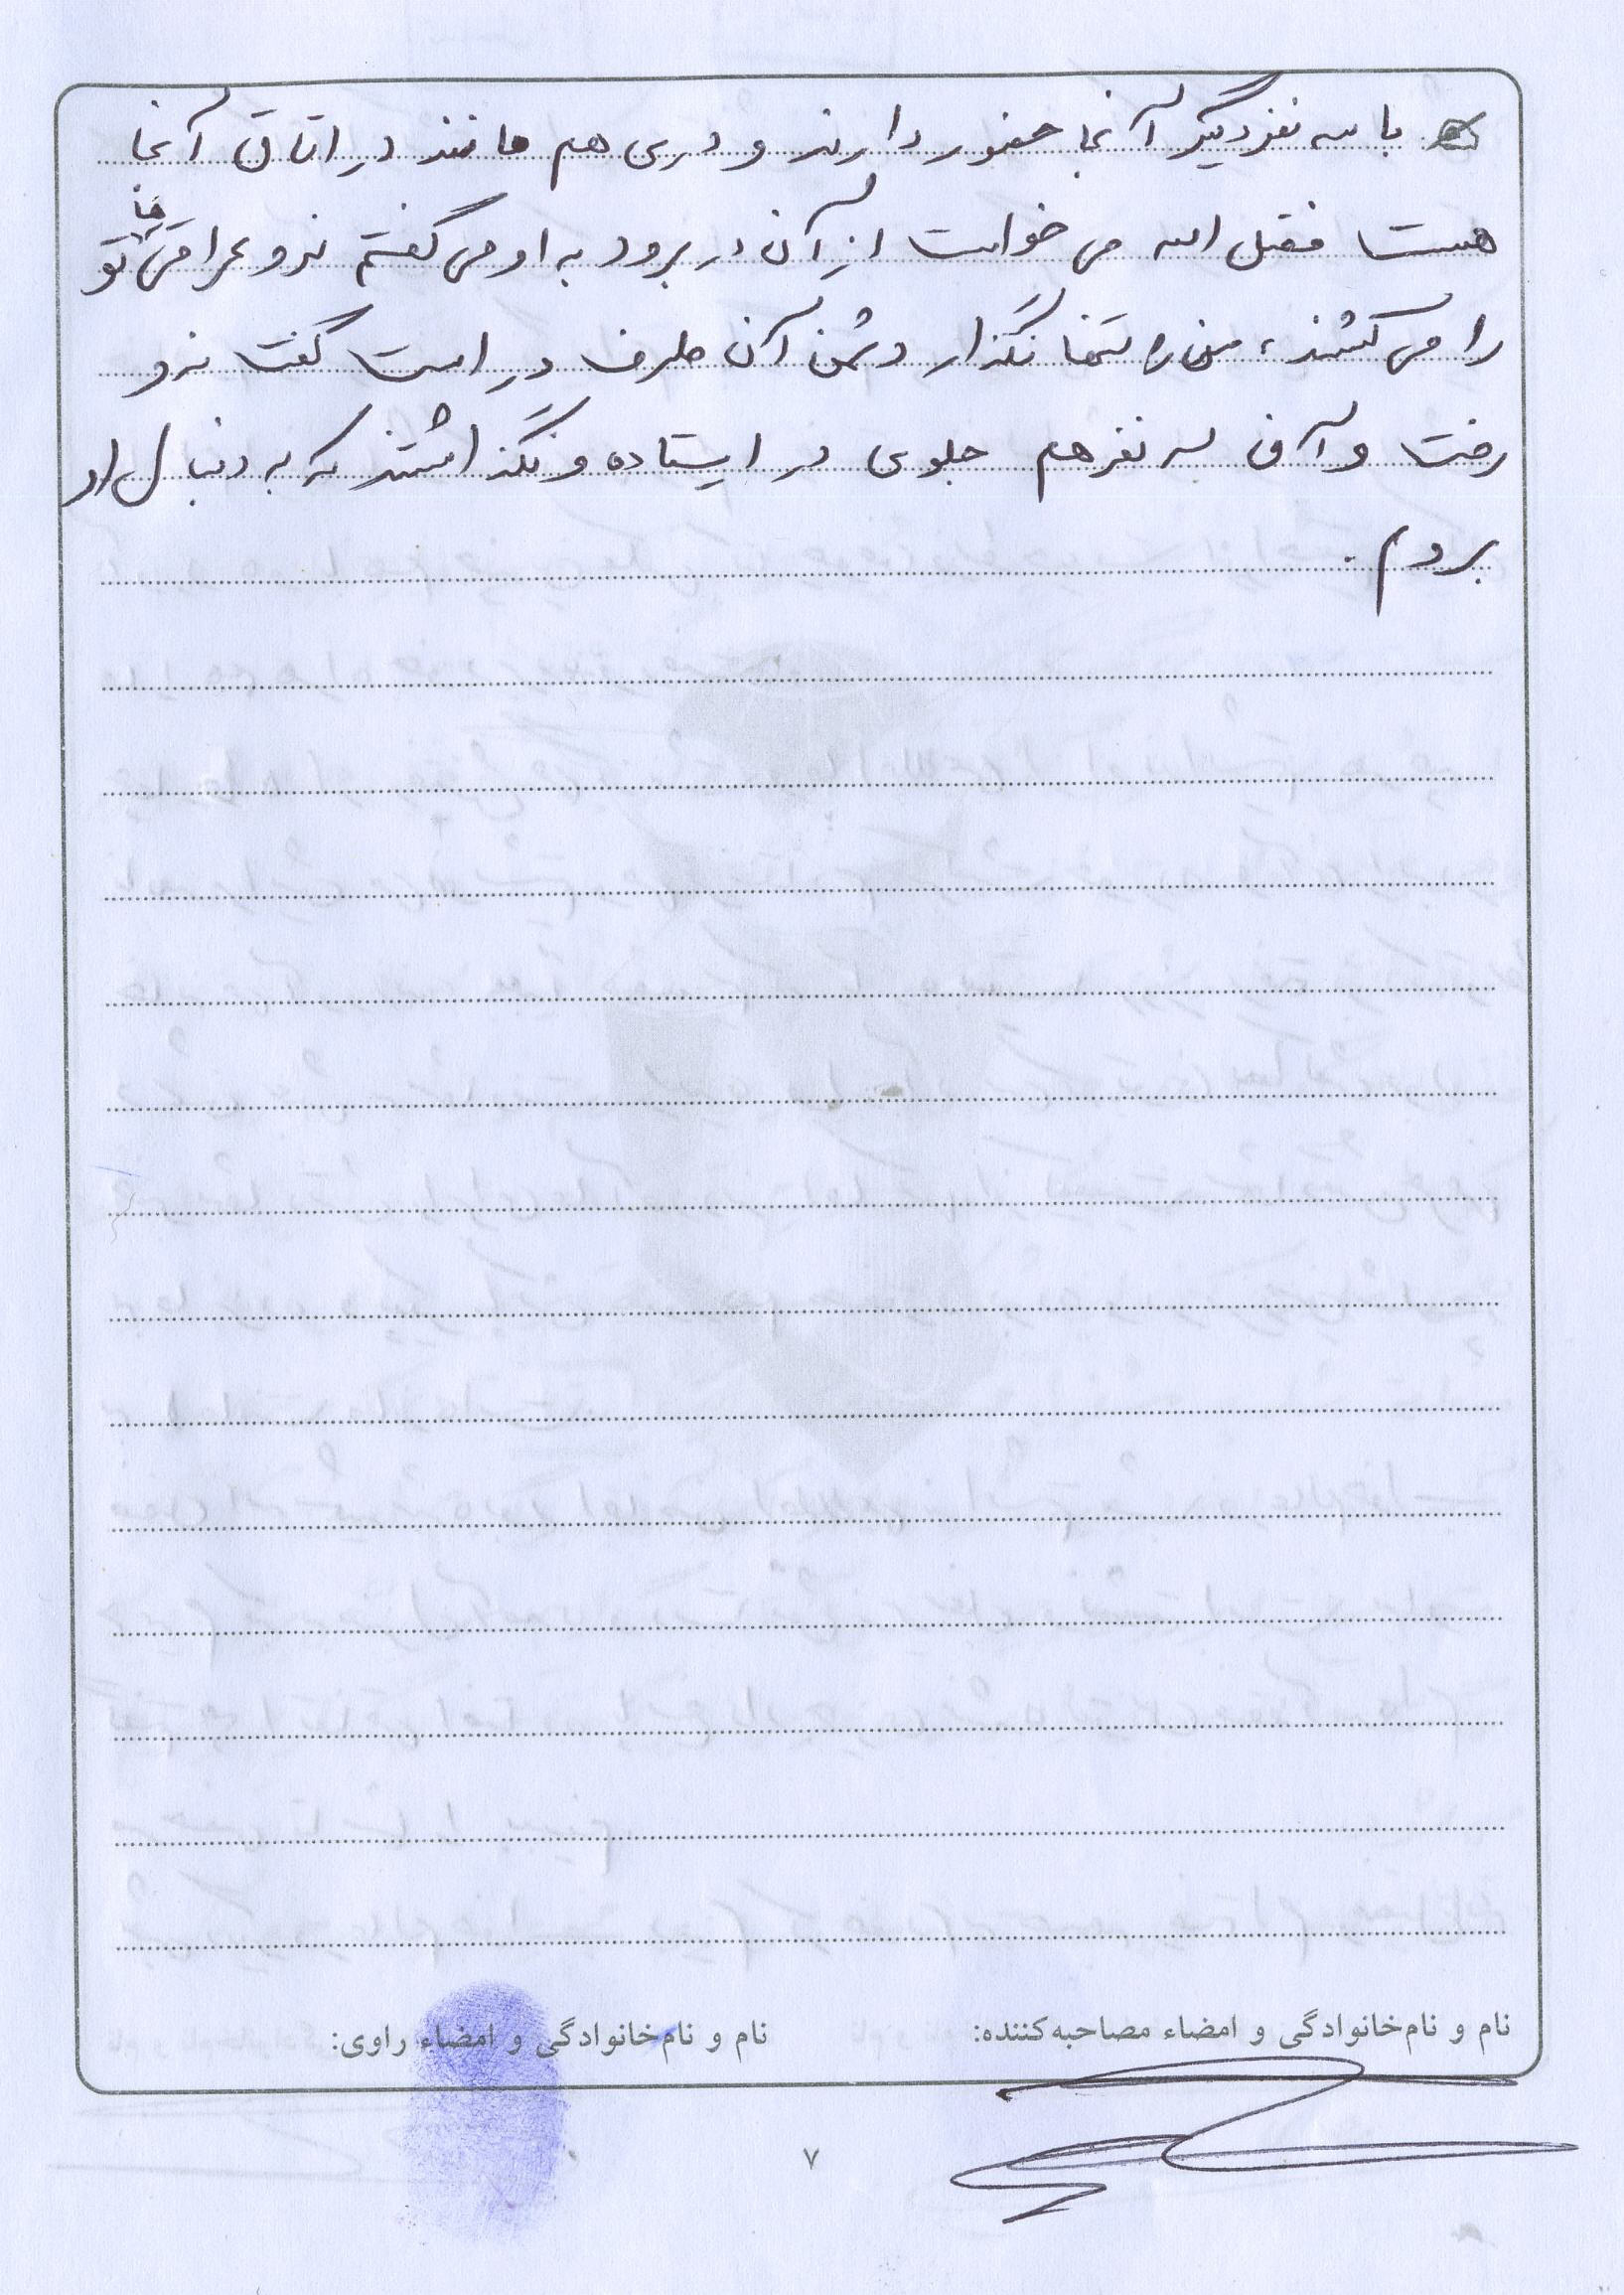 با سه نفر دیگر آنجا حضور دارند و دری هم مانند در اتاق آنجا
هست فضل اله می خواست از آن در برود به او می گفتم نرو عراقی ها تو
را می کشند، من را تنها نگذار دشمن آن طرف در است گفت نرو
رفت و آن سه نفر هم جلوی در ایستاده و نگذاشتند که به دنبال او
بروم.
نام و نام‌خانوادگی و امضاء مصاحبه‌کننده:
نام و نام‌خانوادگی و امضاء راوی:
۷